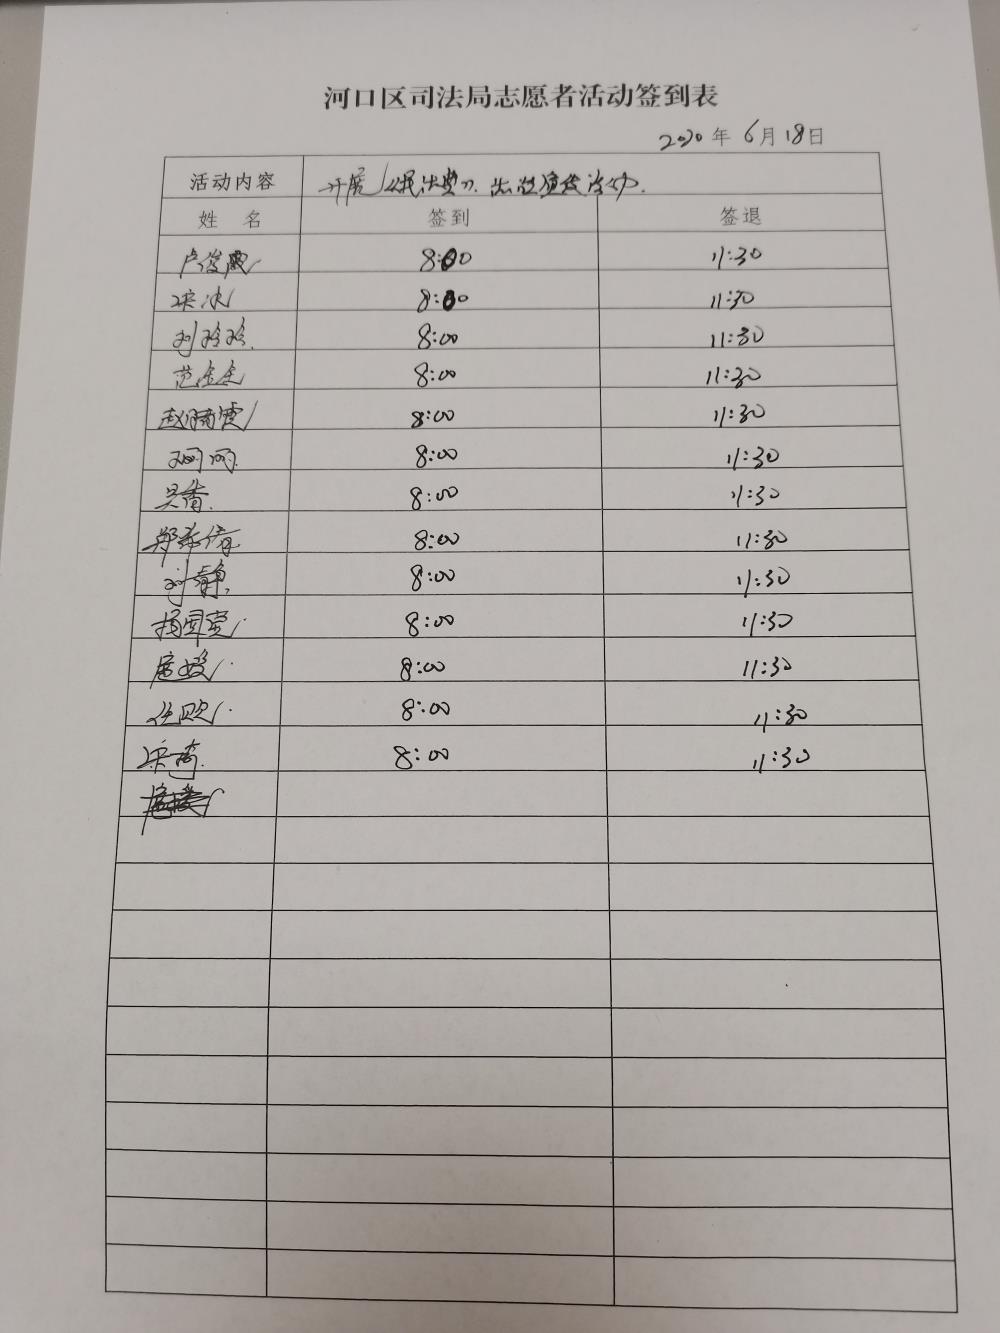 河口区司法局志愿者活动签到表
2020年6月18日
活动内容 开展《民法典》法治宣传活动.
姓 名 签到 签退
卢俊霞 8:00 11:30
梁冰 8:00 11:30
刘玲玲. 8:00 11:30
范金金 8:00 11:30
赵晴雪 8:00 11:30
8:00 11:30
吴倩. 8:00 11:30
郑希倩 8:00 11:30
刘静. 8:00 11:30
杨国堂. 8:00 11:30
8:00 11:30
任欣. 8:00 11:30
8:00 11:30